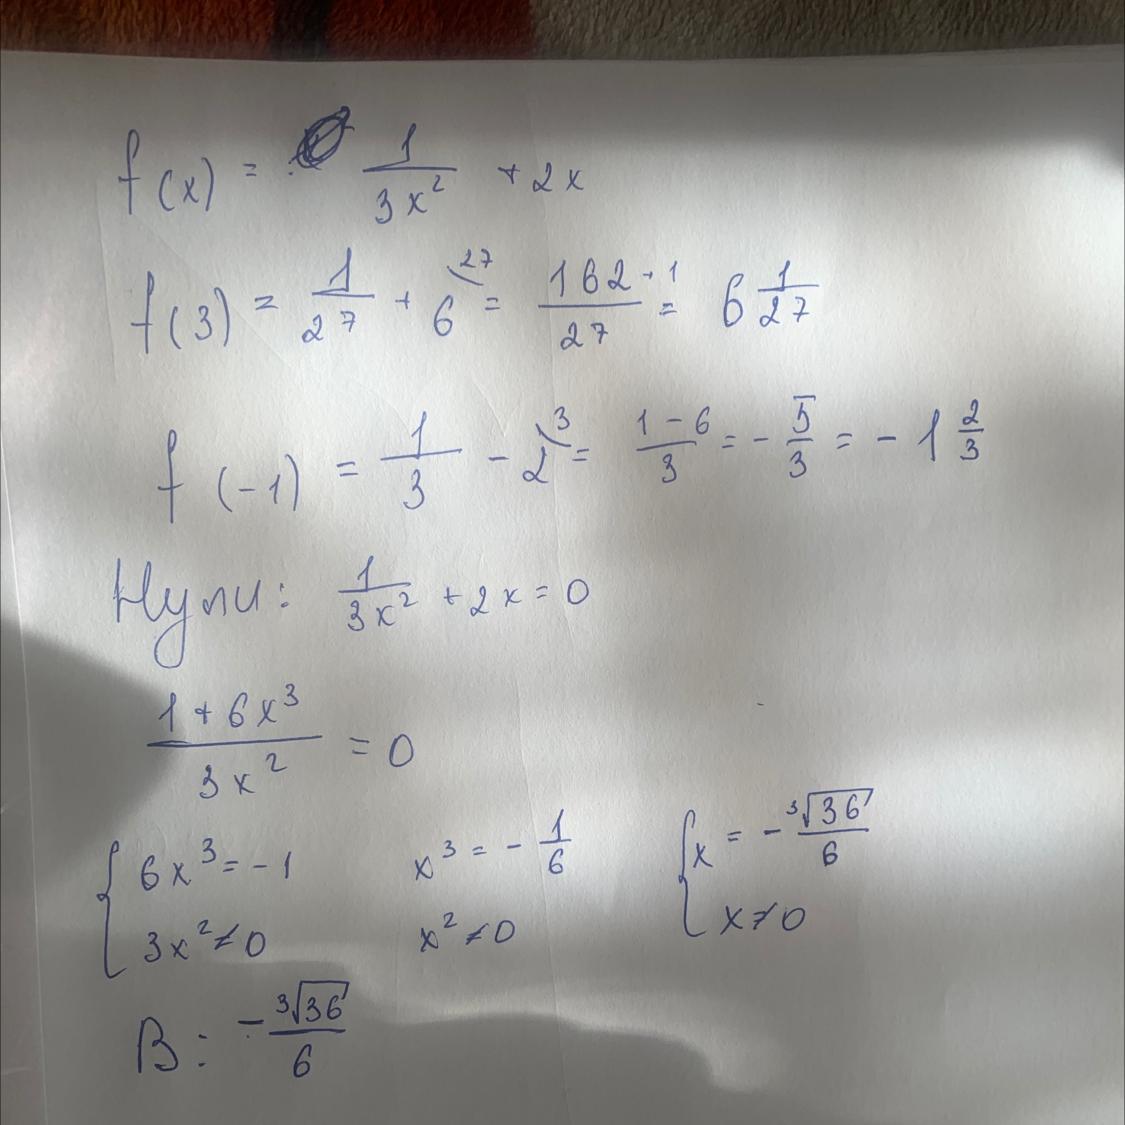 f(x) = 1/(3x²) + 2x
f(3) = 1/27 + 6^27 = (162+1)/27 = 6 1/27
f(-1) = 1/3 - 2^3 = (1-6)/3 = -5/3 = -1 2/3
Нули: 1/(3x²) + 2x = 0
(1+6x³)/(3x²) = 0
{ 6x³ = -1 x³ = -1/6 { x = -³√36/6
3x² ≠ 0 x² ≠ 0 x ≠ 0
В: -³√36/6